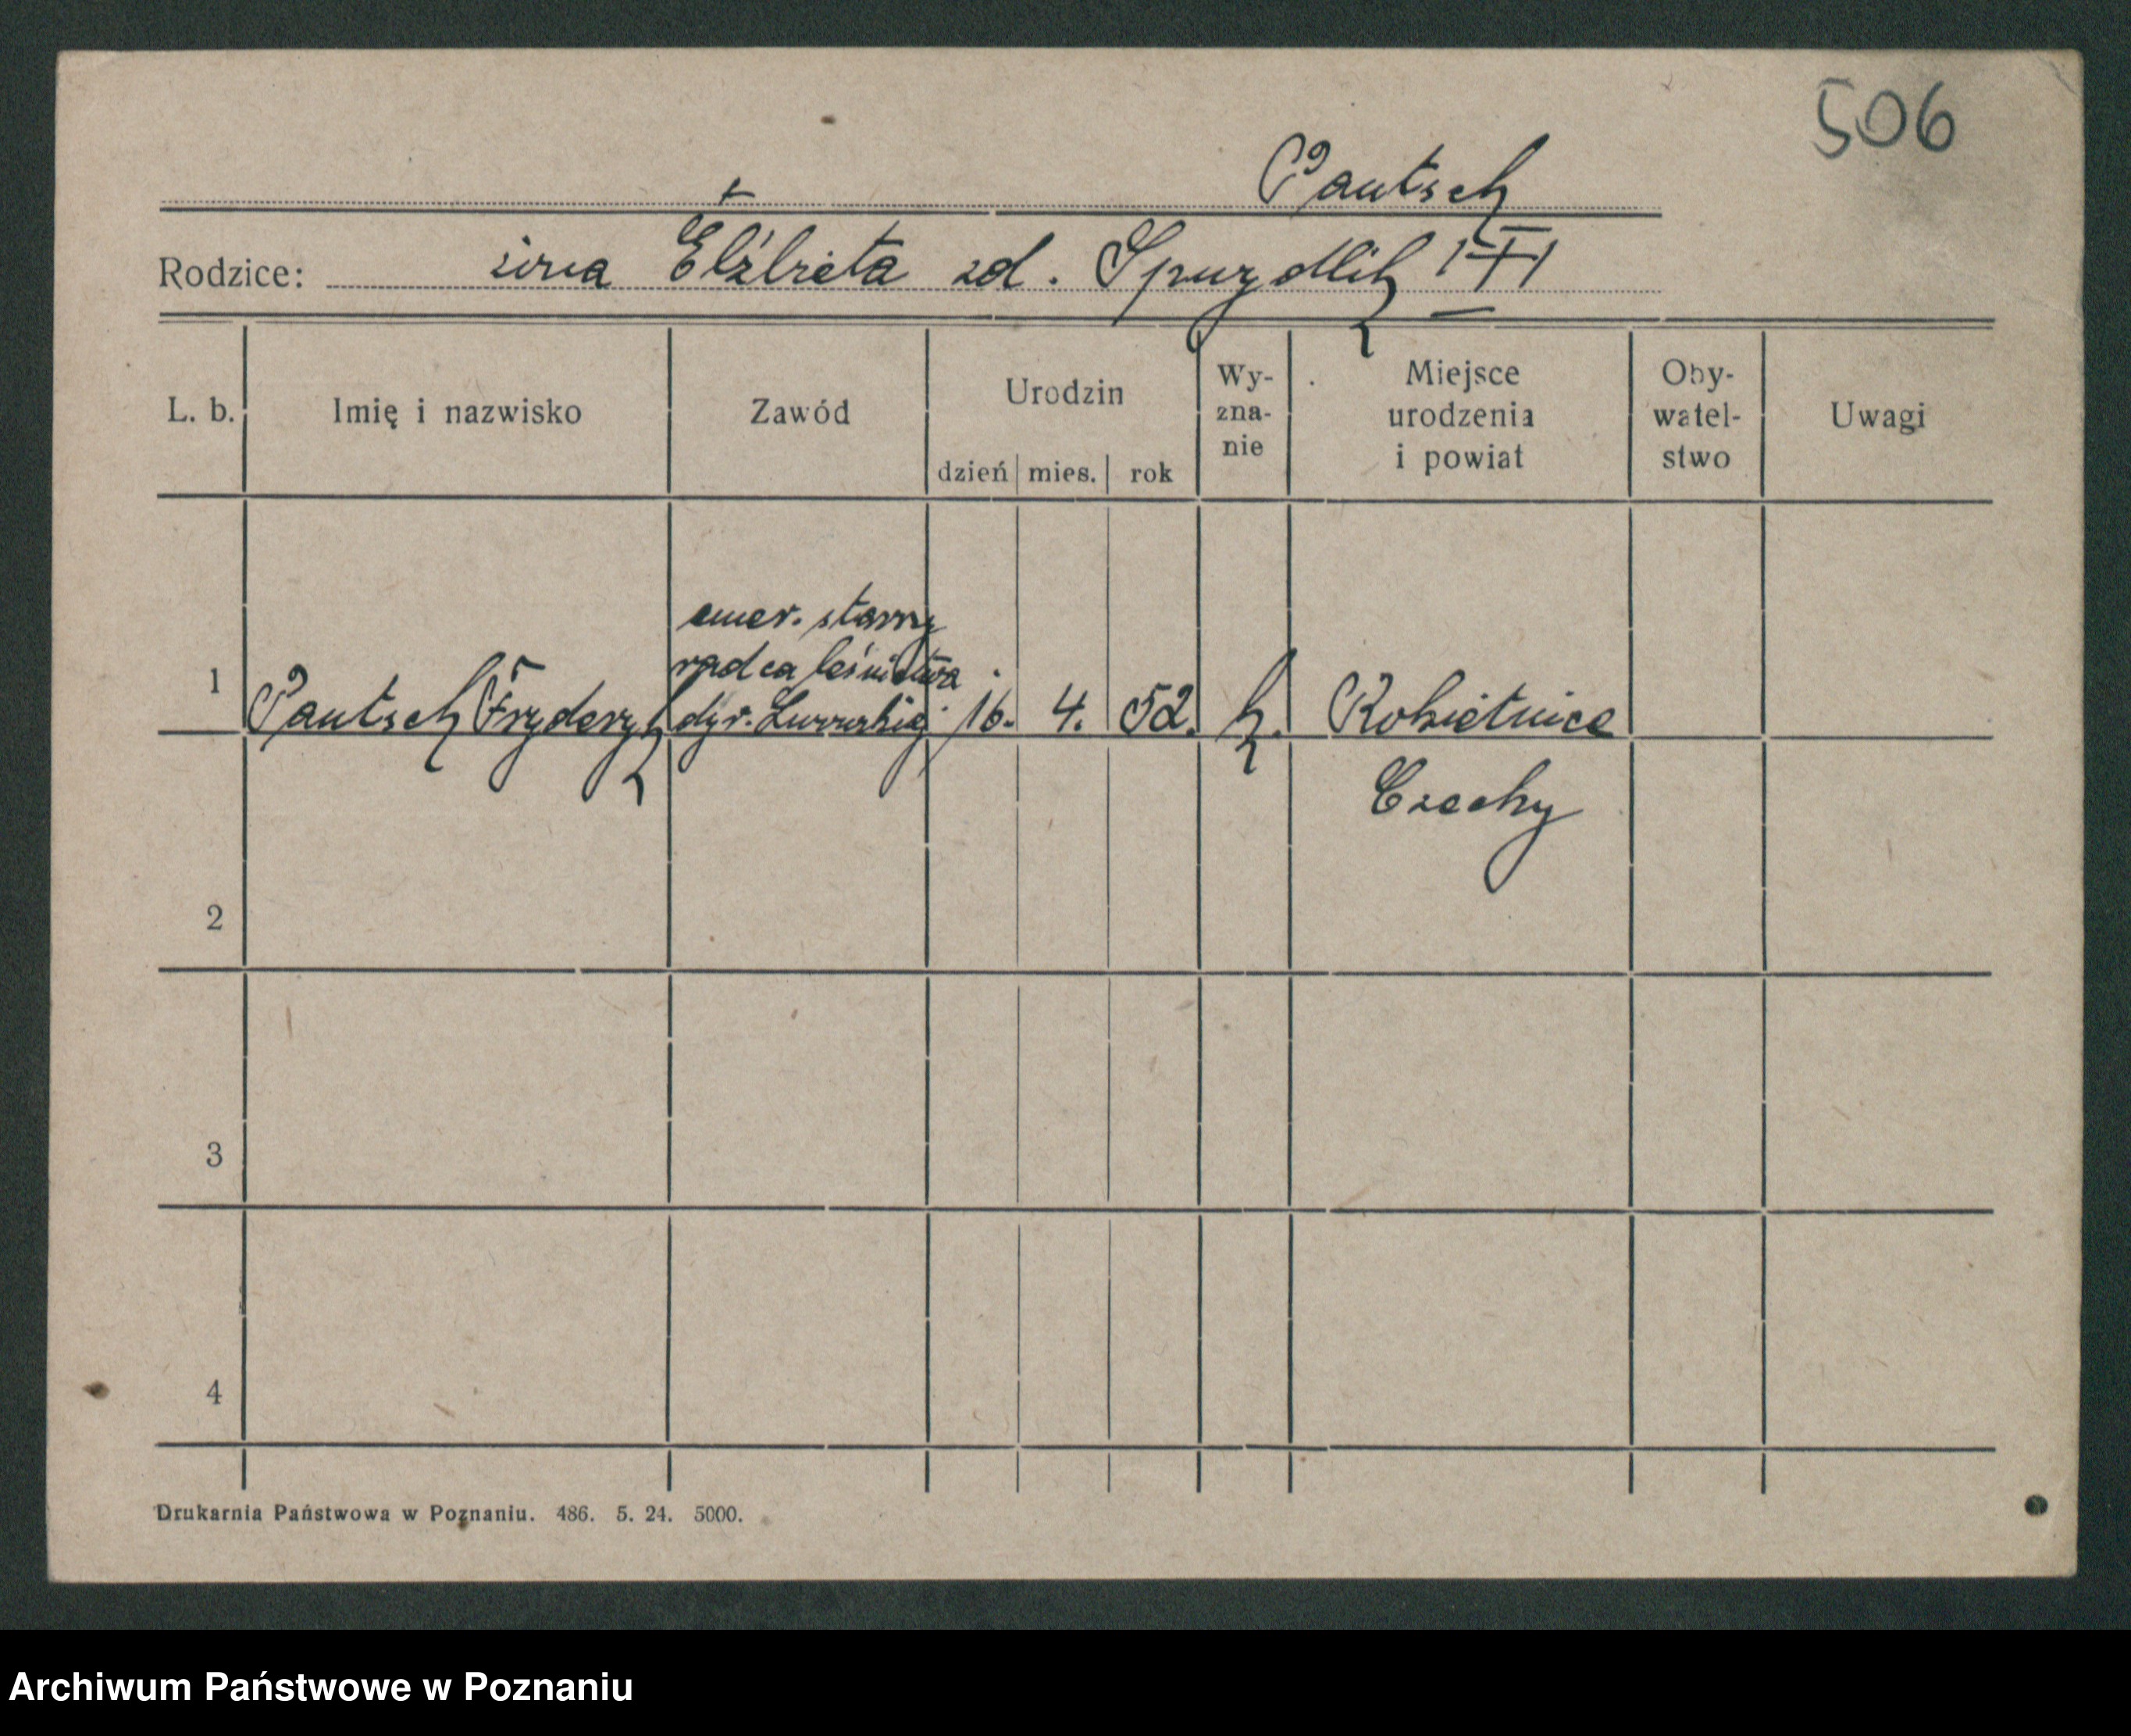 506
Pautsch
Rodzice: żona Elżbieta zd. Spurydlik I-II
L. b. Imię i nazwisko Zawód Urodzin dzień mies. rok Wy-zna-nie Miejsce urodzenia i powiat Oby-watel-stwo Uwagi
emer. starszy
radca leśnictwa
1 Pautsch Fryderyk dyr. Lwowskiej 16. 4. 52. k. Rokietnice
Czechy
2
3
4
Drukarnia Państwowa w Poznaniu. 486. 5. 24. 5000.
Archiwum Państwowe w Poznaniu